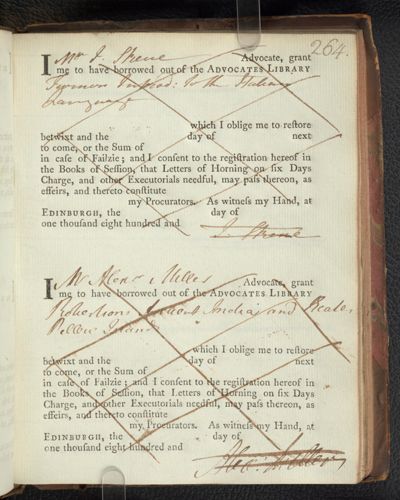 264.
I Mr J. Skene Advocate, grant
me to have borrowed out of the ADVOCATES LIBRARY
to the Italian
Language
which I oblige me to reſtore
betwixt and the day of next
to come, or the Sum of
in caſe of Failzie; and I conſent to the regiſtration hereof in
the Books of Seſſion, that Letters of Horning on ſix Days
Charge, and other Executorials needful, may paſs thereon, as
effeirs, and thereto conſtitute
my Procurators. As witneſs my Hand, at
EDINBURGH, the day of
one thouſand eight hundred and
J Skene
I Mr Alexr Miller Advocate, grant
me to have borrowed out of the ADVOCATES LIBRARY
Robertsons India and Keate's
Pellew Islands
which I oblige me to reſtore
betwixt and the day of next
to come, or the Sum of
in caſe of Failzie; and I conſent to the regiſtration hereof in
the Books of Seſſion, that Letters of Horning on ſix Days
Charge, and other Executorials needful, may paſs thereon, as
effeirs, and thereto conſtitute
my Procurators. As witneſs my Hand, at
EDINBURGH, the day of
one thouſand eight hundred and
Alexr Miller